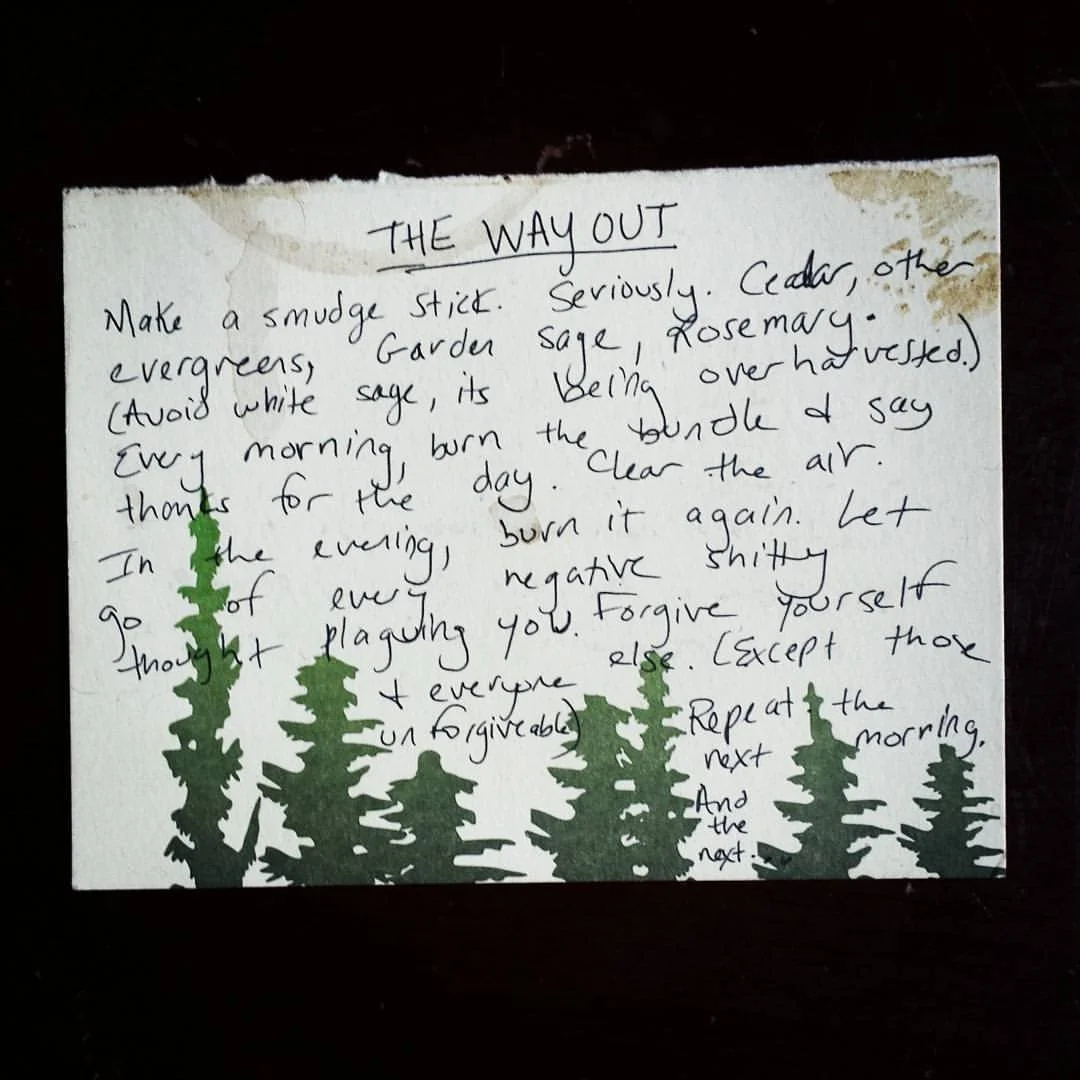 THE WAY OUT
Make a smudge stick. Seriously. Cedar, other
evergreens, Garden sage, Rosemary.
(Avoid white sage, its being overharvested.)
Every morning, burn the bundle & say
thanks for the day. Clear the air.
In the evening, burn it again. Let
go of every negative shitty
thought plaguing you. Forgive yourself
& everyone else. (Except those
unforgiveable)
Repeat the
next morning.
And
the
next....